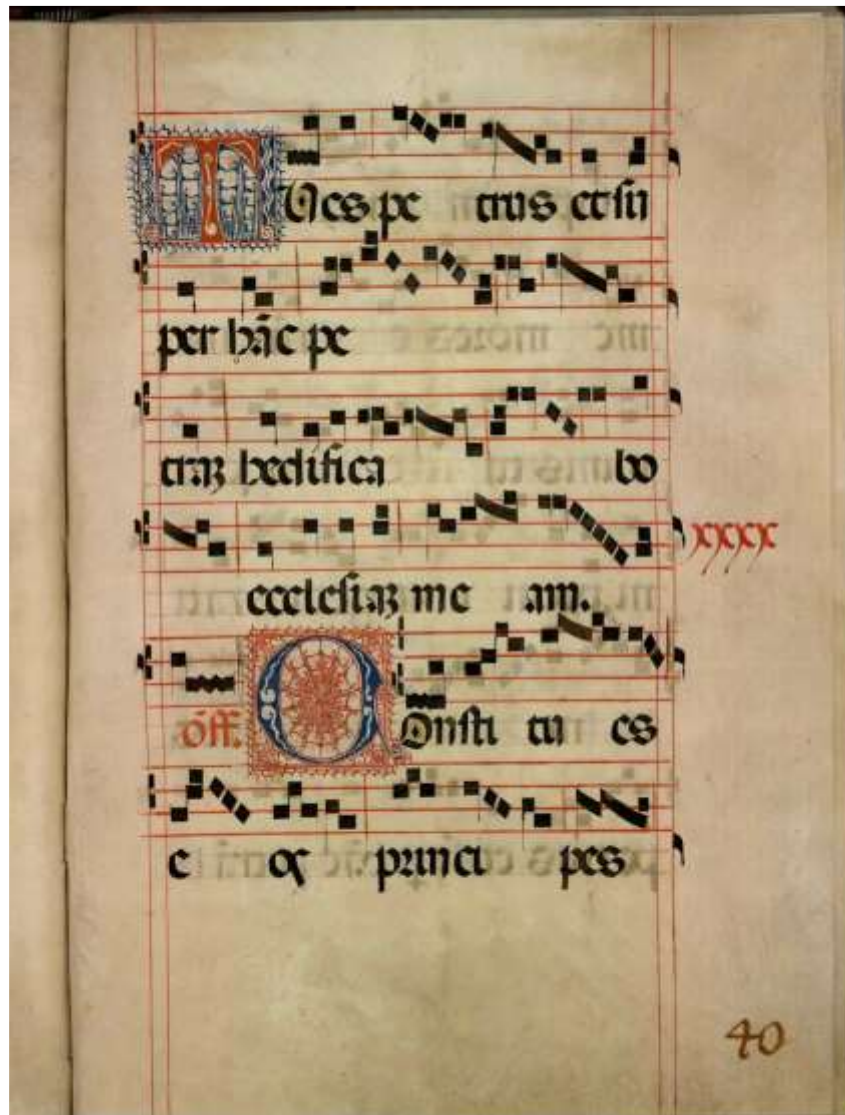 TU es pe trus et su
per hāc pe
traꝫ hedifica bo
ecclesiaꝫ me am.
xxxx
Off. COnsti tu es
e os princi pes
40